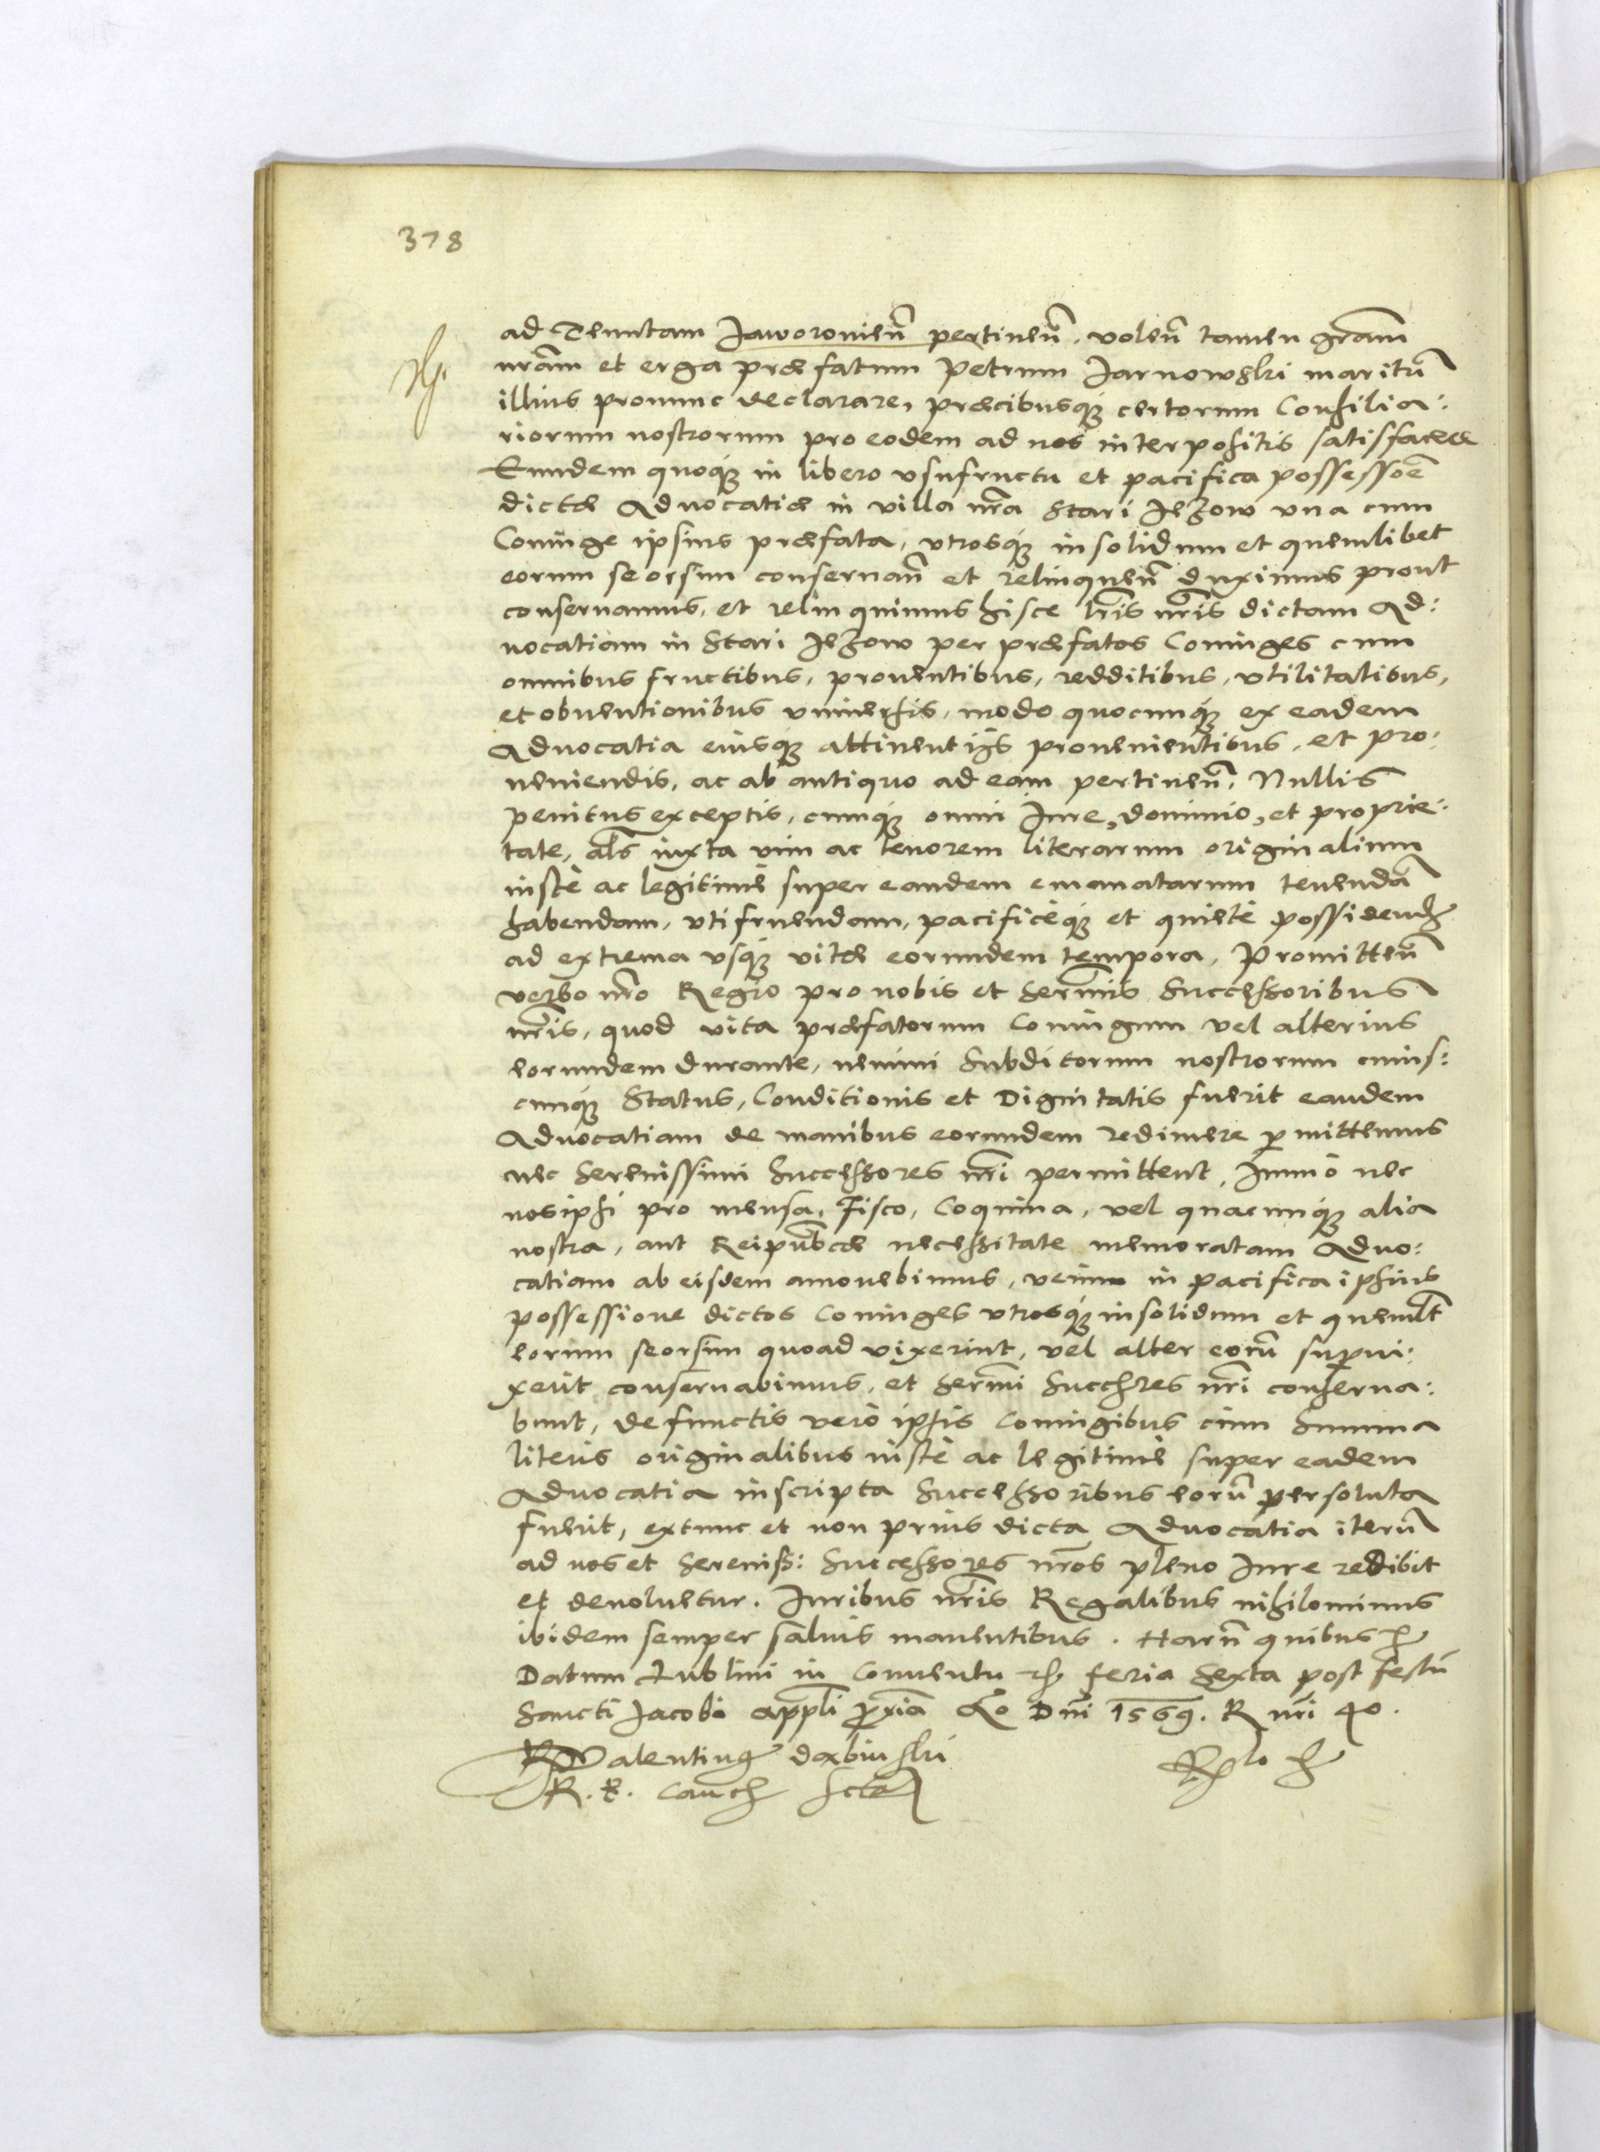 378
ad Tenutam Jaworovien̄ pertinen̄, volen̄ tamen gra͠m
nra͠m et erga præfatum Petrum Jarnowski maritū
illius pronunc declarare, præcibusq́ue certorum Consilia:
riorum nostrorum pro eodem ad nos interpositis satisfacere
Eundem quoq́ue in libero vsufructu et pacifica possessoē
dictæ Aduocatiæ in villa nr͠a Stari Jezow vna cum
Coniuge ipsius præfata, vtrosq́ue insolidum et quemlibet
eorum seorsim conseruan̄ et relinquen̄ duximus prout
conseruamus, et relinquimus hisce lr͠is nr͠is dictam Ad:
uocatiam in Stari Jezow per præfatos Coniuges cum
omnibus fructibus, prouentibus, redditibus, vtilitatibus,
et obuentionibus vniuersis, modo quocunq́ue ex eadem
Aduocatia eiusq́ue attinentijs prouenientibus, et pro:
ueniendis, ac ab antiquo ad eam pertinen̄, Nullis
penitus exceptis, cumq́ue omni Iure, dominio, et proprie:
tate, al͠s iuxta vim ac tenorem literarum originalium
iustè ac legitimè super eandem emanatarum tenendā
habendam, vtifruendam, pacificèq́ue et quietè possidend
ad extrema vsq́ue vitæ eorundem tempora, Promitten̄
verbo nr͠o Regio pro nobis et Ser͠mis Successoribus
nr͠is, quod vita præfatorum Coniugum vel alterius
eorundem durante, nemini Subditorum nostrorum cuius:
cunq́ue Status, Conditionis et Dignitatis fuerit eandem
Aduocatiam de manibus eorundem redimere p̱mittemus
nec Serenissimi Successores nr͠i permittent, Immò nec
nosipsi pro mensa, Fisco, Coquina, vel quacunq́ue alia
nostra, aut Reipub͠cæ necessitate memoratam Aduo:
catiam ab eisdem amouebimus, verum in pacifica ipsius
possessione dictos Coniuges vtrosq́ue insolidum et queml͠t
eorum seorsim quoad vixerint, vel alter eorū sup̱ui:
xerit conseruabimus, et Ser͠mi Succ͠sres nr͠i conserua:
bunt, defunctis verò ipsis Coniugibus cum Summa
literis originalibus iustè ac legitimè super eadem
Aduocatia inscripta Successoribus eorū persoluta
fuerit, extunc et non prius dicta Aduocatia iterū
ad nos et Sereniss: Successores nr͠os pleno Iure redibit
et deuoluetur. Iuribus nr͠is Regalibus nihilominus
ibidem semper saluis manentibus. Harū quibus
Datum Lublini in Conuentu feria Sexta post festū
Sancti Jacobi App͠li p̱xiā Ao Dn͠i 1569. R nr͠i 40.
Valentinus Dębiński
R. P. Canc